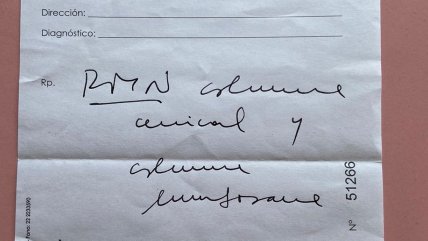 Dirección:
Diagnóstico:
Rp. RMN columna
cervical y
columna
lumbosacra
Nº 51266